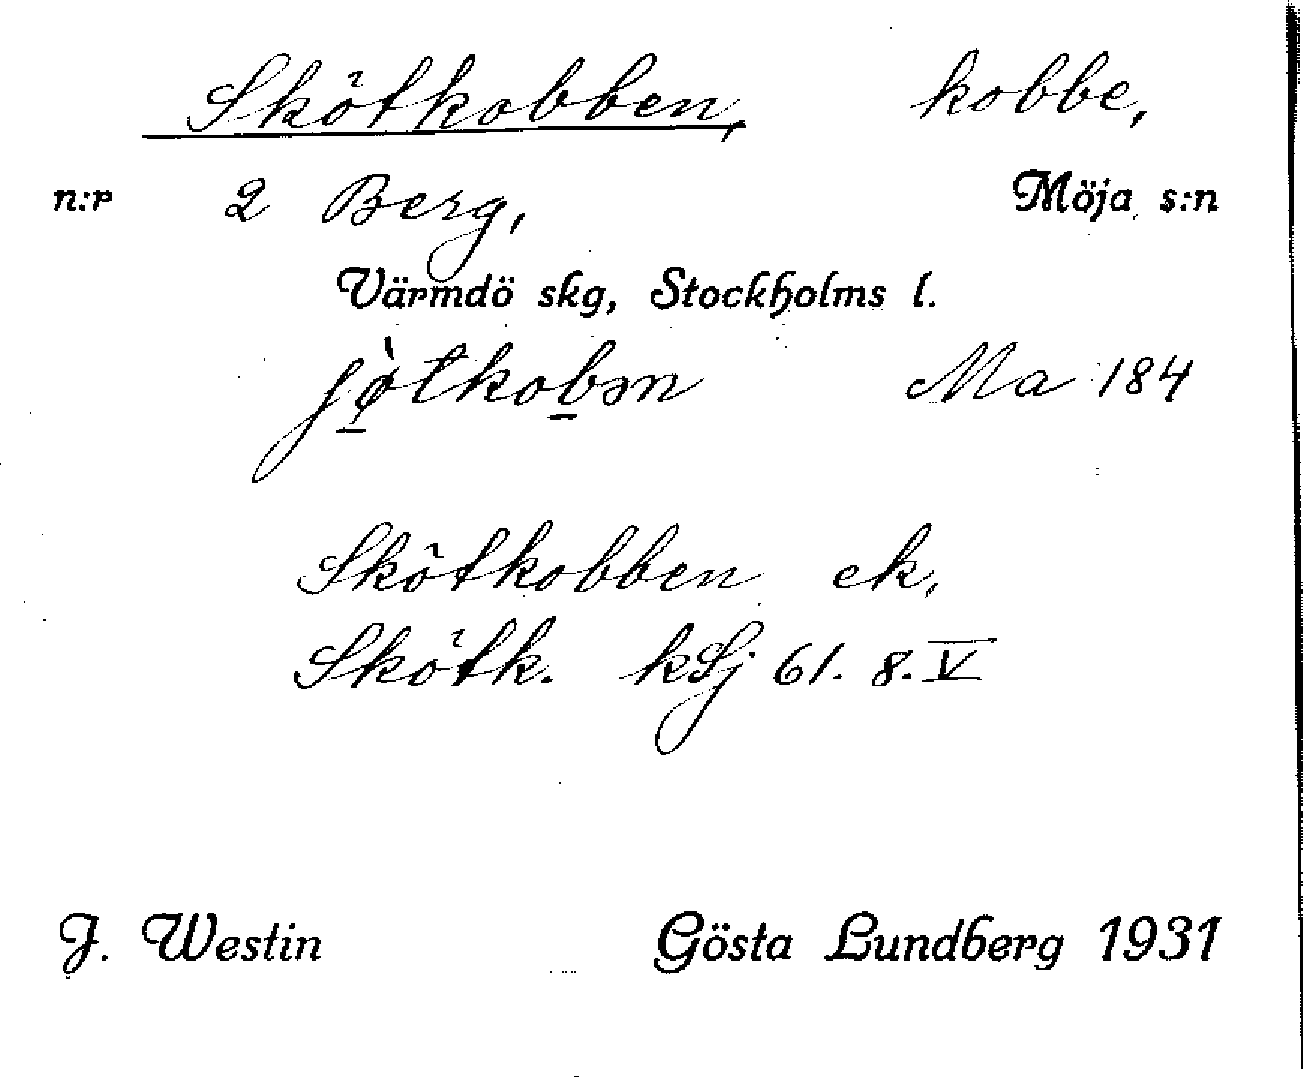 Skötkobben, kobbe,
n:r 2 Berg, Möja s:n
Värmdö skg, Stockholms l.
ʃø̀tkobən Ma 184
Skötkobben ek.
Skötk. kSj 61. 8. V
J. Westin Gösta Lundberg 1931